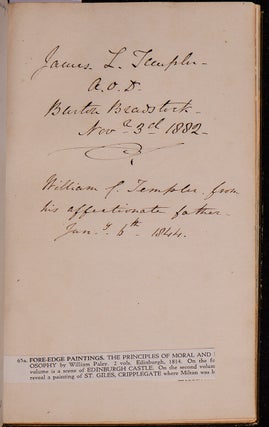 James L. Templer
A.O.D.
Burton Bradstock
Novr 3rd 1882
William C. Templer from
his affectionate father
Jany 6th 1844.
65a. FORE-EDGE PAINTINGS. THE PRINCIPLES OF MORAL AND
OSOPHY by William Paley. 2 vols. Edinburgh, 1814. On the
volume is a scene of EDINBURGH CASTLE. On the second volum
reveal a painting of ST. GILES, CRIPPLEGATE where Milton was b